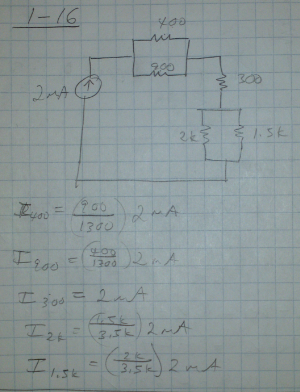 1-16
400
900
2mA
300
2k
1.5k
I400 = (900/1300) 2mA
I900 = (400/1300) 2mA
I300 = 2mA
I2k = (1.5k/3.5k) 2mA
I1.5k = (2k/3.5k) 2mA